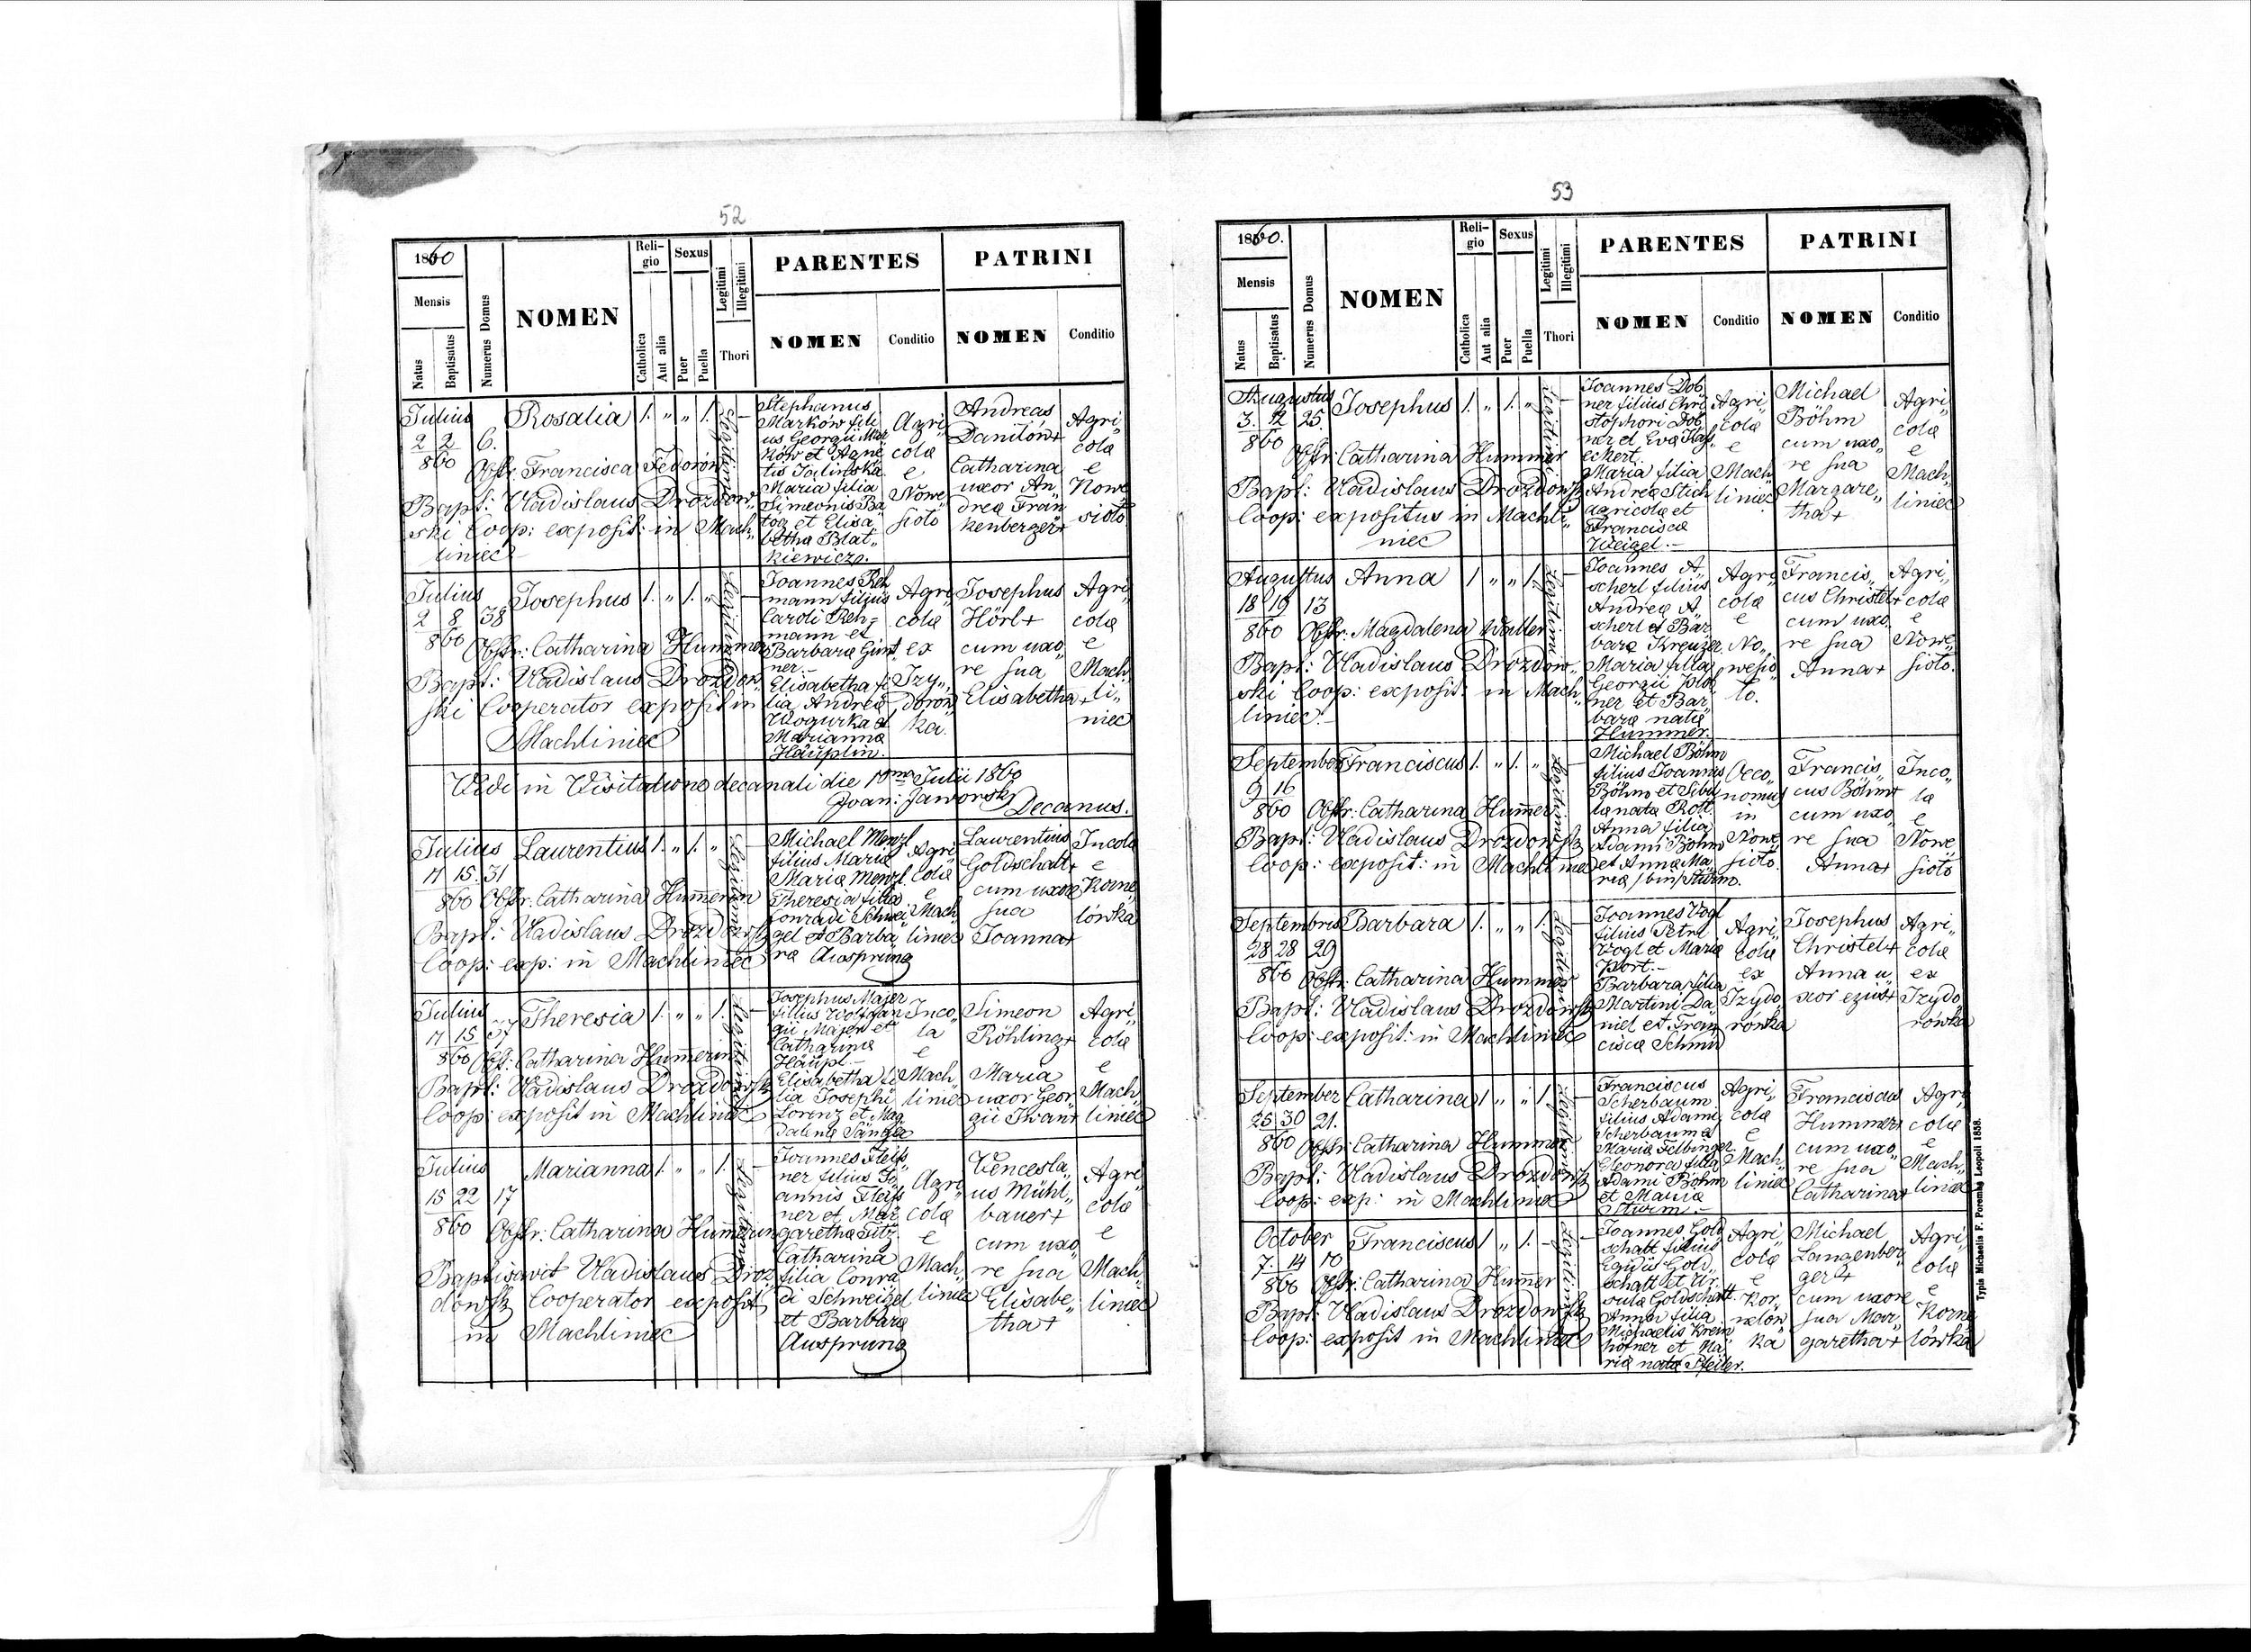 52
1860
Mensis
Natus
Baptisatus
Numerus Domus
NOMEN
Religio
Catholica
Aut alia
Sexus
Puer
Puella
Legitimi
Illegitimi
Thori
PARENTES
NOMEN
Conditio
PATRINI
NOMEN
Conditio
Julius
2 2 6.
860
Rosalia 1. " " 1. –
Legitimi
Obstr. Francisca Fedorón
Bapt: Vladislaus Drozdow„
ski Coop: exposit: in Mach„
liniec
Stephanus
Marków fili
us Georgii Mar
ków et Agne
tis Julinska
Maria filia
Simeonis Ba
tog et Elisa„
betha Blat„
kiewicz.
Agri„
cola
e
Nowe
sioło
Andreas
Daniłów+
Catharina
uxor An„
dreæ Fran
kenberger+
Agri„
cola
e
Nowe
sioło
Julius
2 8 38
860
Josephus 1. " 1. " –
Legitimi
Obstr: Catharina Hummer
Bapt: Vladislaus Drozdow„
ski Cooperator exposit in
Machliniec
Joannes Reh
mann filius
Caroli Reh-
mann et
Barbara Günt„
ner.–
Elisabetha fi
lia Andreæ
Wogurka et
Marianna
Häuplin.
Agri„
cola
ex
Izy„
dorów
ka.
Josephus
Hörl+
cum uxo„
re sua
Elisabetha+
Agri„
cola
e
Mach„
li„
niec
Vidi in Visitatione decanali die 10ma Julii 1860
Joan: Jaworski
Decanus.
Julius
11 15. 31
860
Laurentius 1. " 1. " –
Legitimi
Obstr. Catharina Hum̄erin
Bapt: Vladislaus Drozdowski
Coop: exp: in Machliniec
Michael Menzl
filius Maria
Maria Menzl.
Theresia filia
Conradi Schwei
gel et Barba„
ra Aussprung
Agri„
cola
e
Mach„
liniec
Laurentius
Goldschalt+
cum uxore
sua
Joanna+
Incola
e
Korne„
lówka
Julius
11 15 37
860
Theresia 1. " " 1. –
Legitimi
Obst: Catharina Hum̄erin
Bapt: Vladislaus Drozdowski
Coop: exposit in Machliniec
Josephus Majer
filius Wolfgan
gii Majer et
Catharina
Häupl.–
Elisabetha fi
lia Josephi
Lorenz et Mag
dalena Sänger
Inco„
la
e
Mach„
liniec
Simeon
Röhling+
Maria
uxor Geor„
gii Iwan+
Agri„
cola
e
Mach„
liniec
Julius
15 22 17
860
Marianna 1. " " 1. –
Legitimi
Obstr: Catharina Hum̄erin
Baptisavit Vladislaus Droz„
dowski Cooperator exposit
in Machliniec
Joannes Fleiß„
ner filius Jo„
annis Fleiß
ner et Mar
garetha Titz.
Catharina
filia Conra
di Schweizel
et Barbara
Aussprung
Agri„
cola
e
Mach„
liniec
Vencesla„
us Mühl„
bauer+
cum uxo„
re sua
Elisabe„
tha+
Agri„
cola
e
Mach„
liniec
53
1860.
Mensis
Natus
Baptisatus
Numerus Domus
NOMEN
Religio
Catholica
Aut alia
Sexus
Puer
Puella
Legitimi
Illegitimi
Thori
PARENTES
NOMEN
Conditio
PATRINI
NOMEN
Conditio
Augustus
3. 12 25.
860
Josephus 1. " 1. " –
Legitimi
Obstr: Catharina Hummer
Bapt: Vladislaus Drozdowski
Coop: expositus in Machli„
niec
Joannes Dob„
ner filius Chri
stophori Dob
ner et Eva Haß„
eckert.
Maria filia
Andreæ Stich
agricola et
Francisca
Weigel.–
Agri„
cola
e
Mach„
liniec
Michael
Böhm
cum uxo„
re sua
Margare„
tha+
Agri„
cola
e
Mach„
liniec
Augustus
18 19 13
860
Anna 1 " " 1. –
Legitimi
Obstr: Magdalena Walter
Bapt: Vladislaus Drozdow„
ski Coop: exposit: in Mach„
liniec.–
Joannes A„
scherl filius
Andreæ A„
scherl et Bar
bara Kreuzer
Maria filia
Georgii Dob„
ner et Bar„
bara nata
Hummer.
Agri„
cola
e
No„
wesio„
ło.
Francis„
cus Christel+
cum uxo„
re sua
Anna+
Agri„
cola
e
Nowe„
sioło.
September
9 16
860
Franciscus 1. " 1. " –
Legitimi
Obstr: Catharina Hum̄er
Bapt: Vladislaus Drozdowski
Coop: exposit: in Machliniec
Michael Böhm
filius Joannis
Böhm et Sibil
la nata Rott.
Anna filia
Adami Böhm
et Anna Ma„
ria /bin/ Sturm.
Oeco„
nomus
in
Nowe
sioło.
Francis„
cus Böhm+
cum uxo„
re sua
Anna+
Inco„
la
e
Nowe
sioło
Septembris
28 28 29
860
Barbara 1. " " 1. –
Legitimi
Obstr. Catharina Hummer
Bapt: Vladislaus Drozdowski
Coop: exposit: in Machliniec
Joannes Vogl
filius Petri
Vogl et Maria
Port.–
Barbara filia
Martini Da„
niel et Fran„
cisca Schmid
Agri„
cola
ex
Izydo„
rówka
Josephus
Christel+
Anna u„
xor ejus+
Agri„
cola
ex
Izydo„
rówka
September
25 30 21.
860
Catharina 1 " " 1 –
Legitimi
Obstr. Catharina Hummer
Bapt: Vladislaus Drozdowski
Coop: exp: in Machliniec
Franciscus
Scherbaum
filius Adami
Scherbaum a
Maria Felbinger
Eleonora filia
Adami Böhm
et Maria
Sturm.–
Agri„
cola
e
Mach„
liniec
Franciscus
Hummer+
cum uxo„
re sua
Catharina+
Agri„
cola
e
Mach„
liniec
October
7. 14 10
860
Franciscus 1 " 1. – –
Legitimi
Obstr: Catharina Hum̄er
Bapt: Vladislaus Drozdowski
Coop: exposit in Machliniec
Joannes Gold„
schalt filius
Egidii Gold„
schalt et Ur„
sula Goldschalt.
Anna filia
Michaelis Krein
höfner et Ma„
ria nata Pfeiler.
Agri„
cola
e
Kor„
nelów„
ka
Michael
Langenber„
ger+
cum uxore
sua Mar„
garetha+
Agri„
cola
e
Korne„
lówka
Typis Michaelis F. Poremba Leopoli 1858.